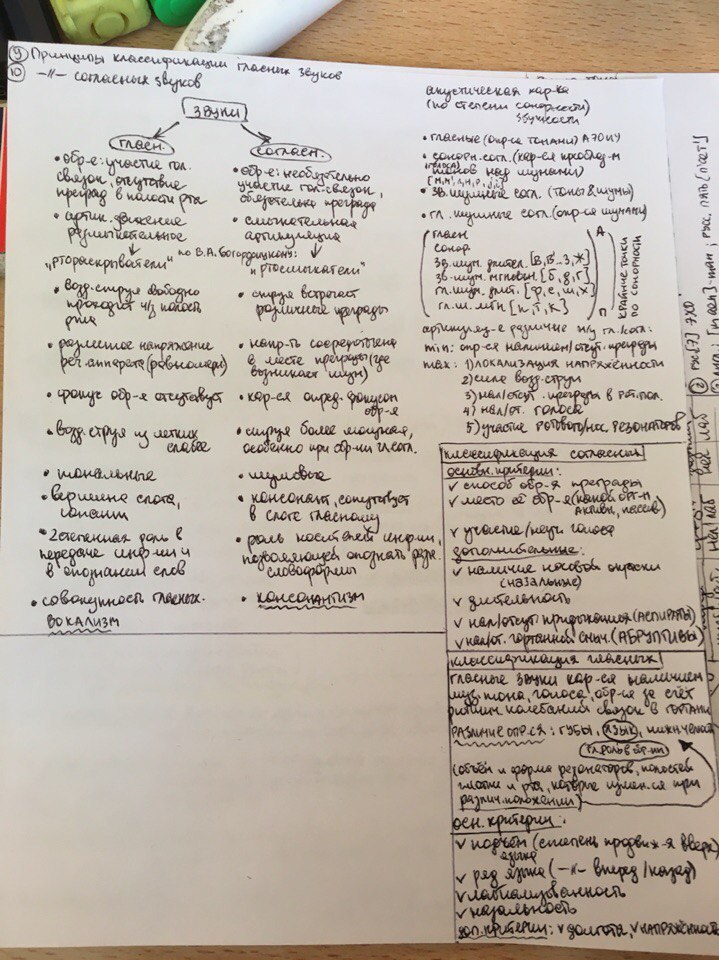 ⑨ Принципы классификации гласных звуков
⑩ -//- согласных звуков
ЗВУКИ
гласн.
• обр-е: участие гол.
связок, отсутствие
преград в полости рта
• артик. движение
размыкательное
"ртораскрыватели"
• возд. струя свободно
проходит ч/з полость
рта
• разлитое напряжение
реч. аппарата (равномерн)
• фокус обр-я отсутствует
• возд. струя из легких
слабее
• тональные
• вершина слога,
• 2степенная роль в
передаче инф-ии и
в опознании слов
• совокупность гласных.
ВОКАЛИЗМ
согласн.
• обр-е: необязательно
участие гол. связок,
обязательна преграда
• смыкательная
артикуляция
по В.А. Богородицкому:
"ртосмыкатели"
• струя встречает
различные преграды
• напр-ть сосредоточена
в месте преграды (где
возникает шум)
• хар-ся опред. фокусом
обр-я
• струя более мощная,
особенно при обр-ии гл. согл.
• шумовые
• консонант, сопутствует
в слоге гласному
• роль носителей инф-ии,
позволяющей опознать разн.
словоформы
• КОНСОНАНТИЗМ
акустическая хар-ка
(по степени сонорности)
звучности
• гласные (опр-ся тонами) АЭОИУ
• сонорн. согл. (хар-ся преоблад-м
(голоса)
тонов над шумами)
• зв. шумные согл. (тоны & шумы)
• гл. шумные согл. (опр-ся шумами)
гласн
сонор.
зв. шум. длител. [в, в'.. з, ж]
зв. шум. мгновен. [б, д, г]
гл. шум. длит. [ф, с, ш, х]
гл. ш. мгн [п, т, к]
А
П
КРАЙНИЕ ТОЧКИ
ПО СОНОРНОСТИ
артикуляц-е различие м/у гл./согл:
min: опр-ся наличием/отсут. преграды
max: 1) ЛОКАЛИЗАЦИЯ НАПРЯЖЁННОСТИ
2) сила возд. струи
3) нал/отсут. преграды в рот. пол.
4) нал/от. голоса
5) участие РОТОВОГО/НОС. РЕЗОНАТОРОВ
КЛАССИФИКАЦИЯ СОГЛАСНЫХ
ОСНОВН. КРИТЕРИИ:
✓ способ обр-я преграды
✓ место её обр-я (какой орг-н
АКТИВН, ПАССИВ)
✓ участие/неуч голоса
ДОПОЛНИТЕЛЬНЫЕ:
✓ наличие носовой окраски
(назальные)
✓ длительность
✓ нал/отсут. придыхания (АСПИРАТЫ)
✓ нал/от. гортанной смыч. (АБРУПТИВЫ)
КЛАССИФИКАЦИЯ ГЛАСНЫХ
ГЛАСНЫЕ ЗВУКИ хар-ся наличием
муз. тона, голоса, обр-ся за счёт
ритмич. колебаний связок в ГОРТАНИ
РАЗЛИЧИЕ ОПР-СЯ: ГУБЫ, ЯЗЫК, нижн. челюсть
ГЛ. РОЛЬ В АР-ИИ
(объём и форма резонаторов, полостей
глотки и рта, которые измен-ся при
различ. положении)
ОСН. КРИТЕРИИ:
✓ подъём (степень продвиж-я вверх)
языка
✓ ряд языка (-//- вперед/назад)
✓ лабиализованность
✓ назальность
ДОП. КРИТЕРИИ: ✓ долгота, ✓ НАПРЯЖЁННОСТЬ